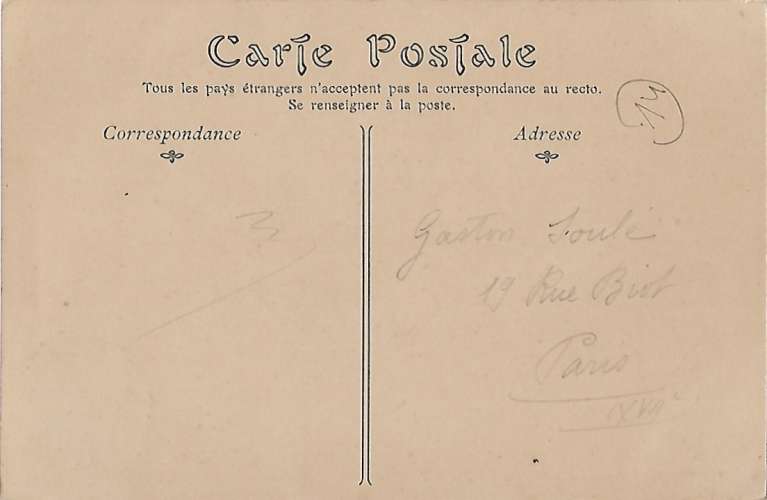 Carte Postale
Tous les pays étrangers n'acceptent pas la correspondance au recto.
Se renseigner à la poste.
14
Correspondance
Adresse
Gaston Soulé
19 Rue Biot
Paris
XVIIe